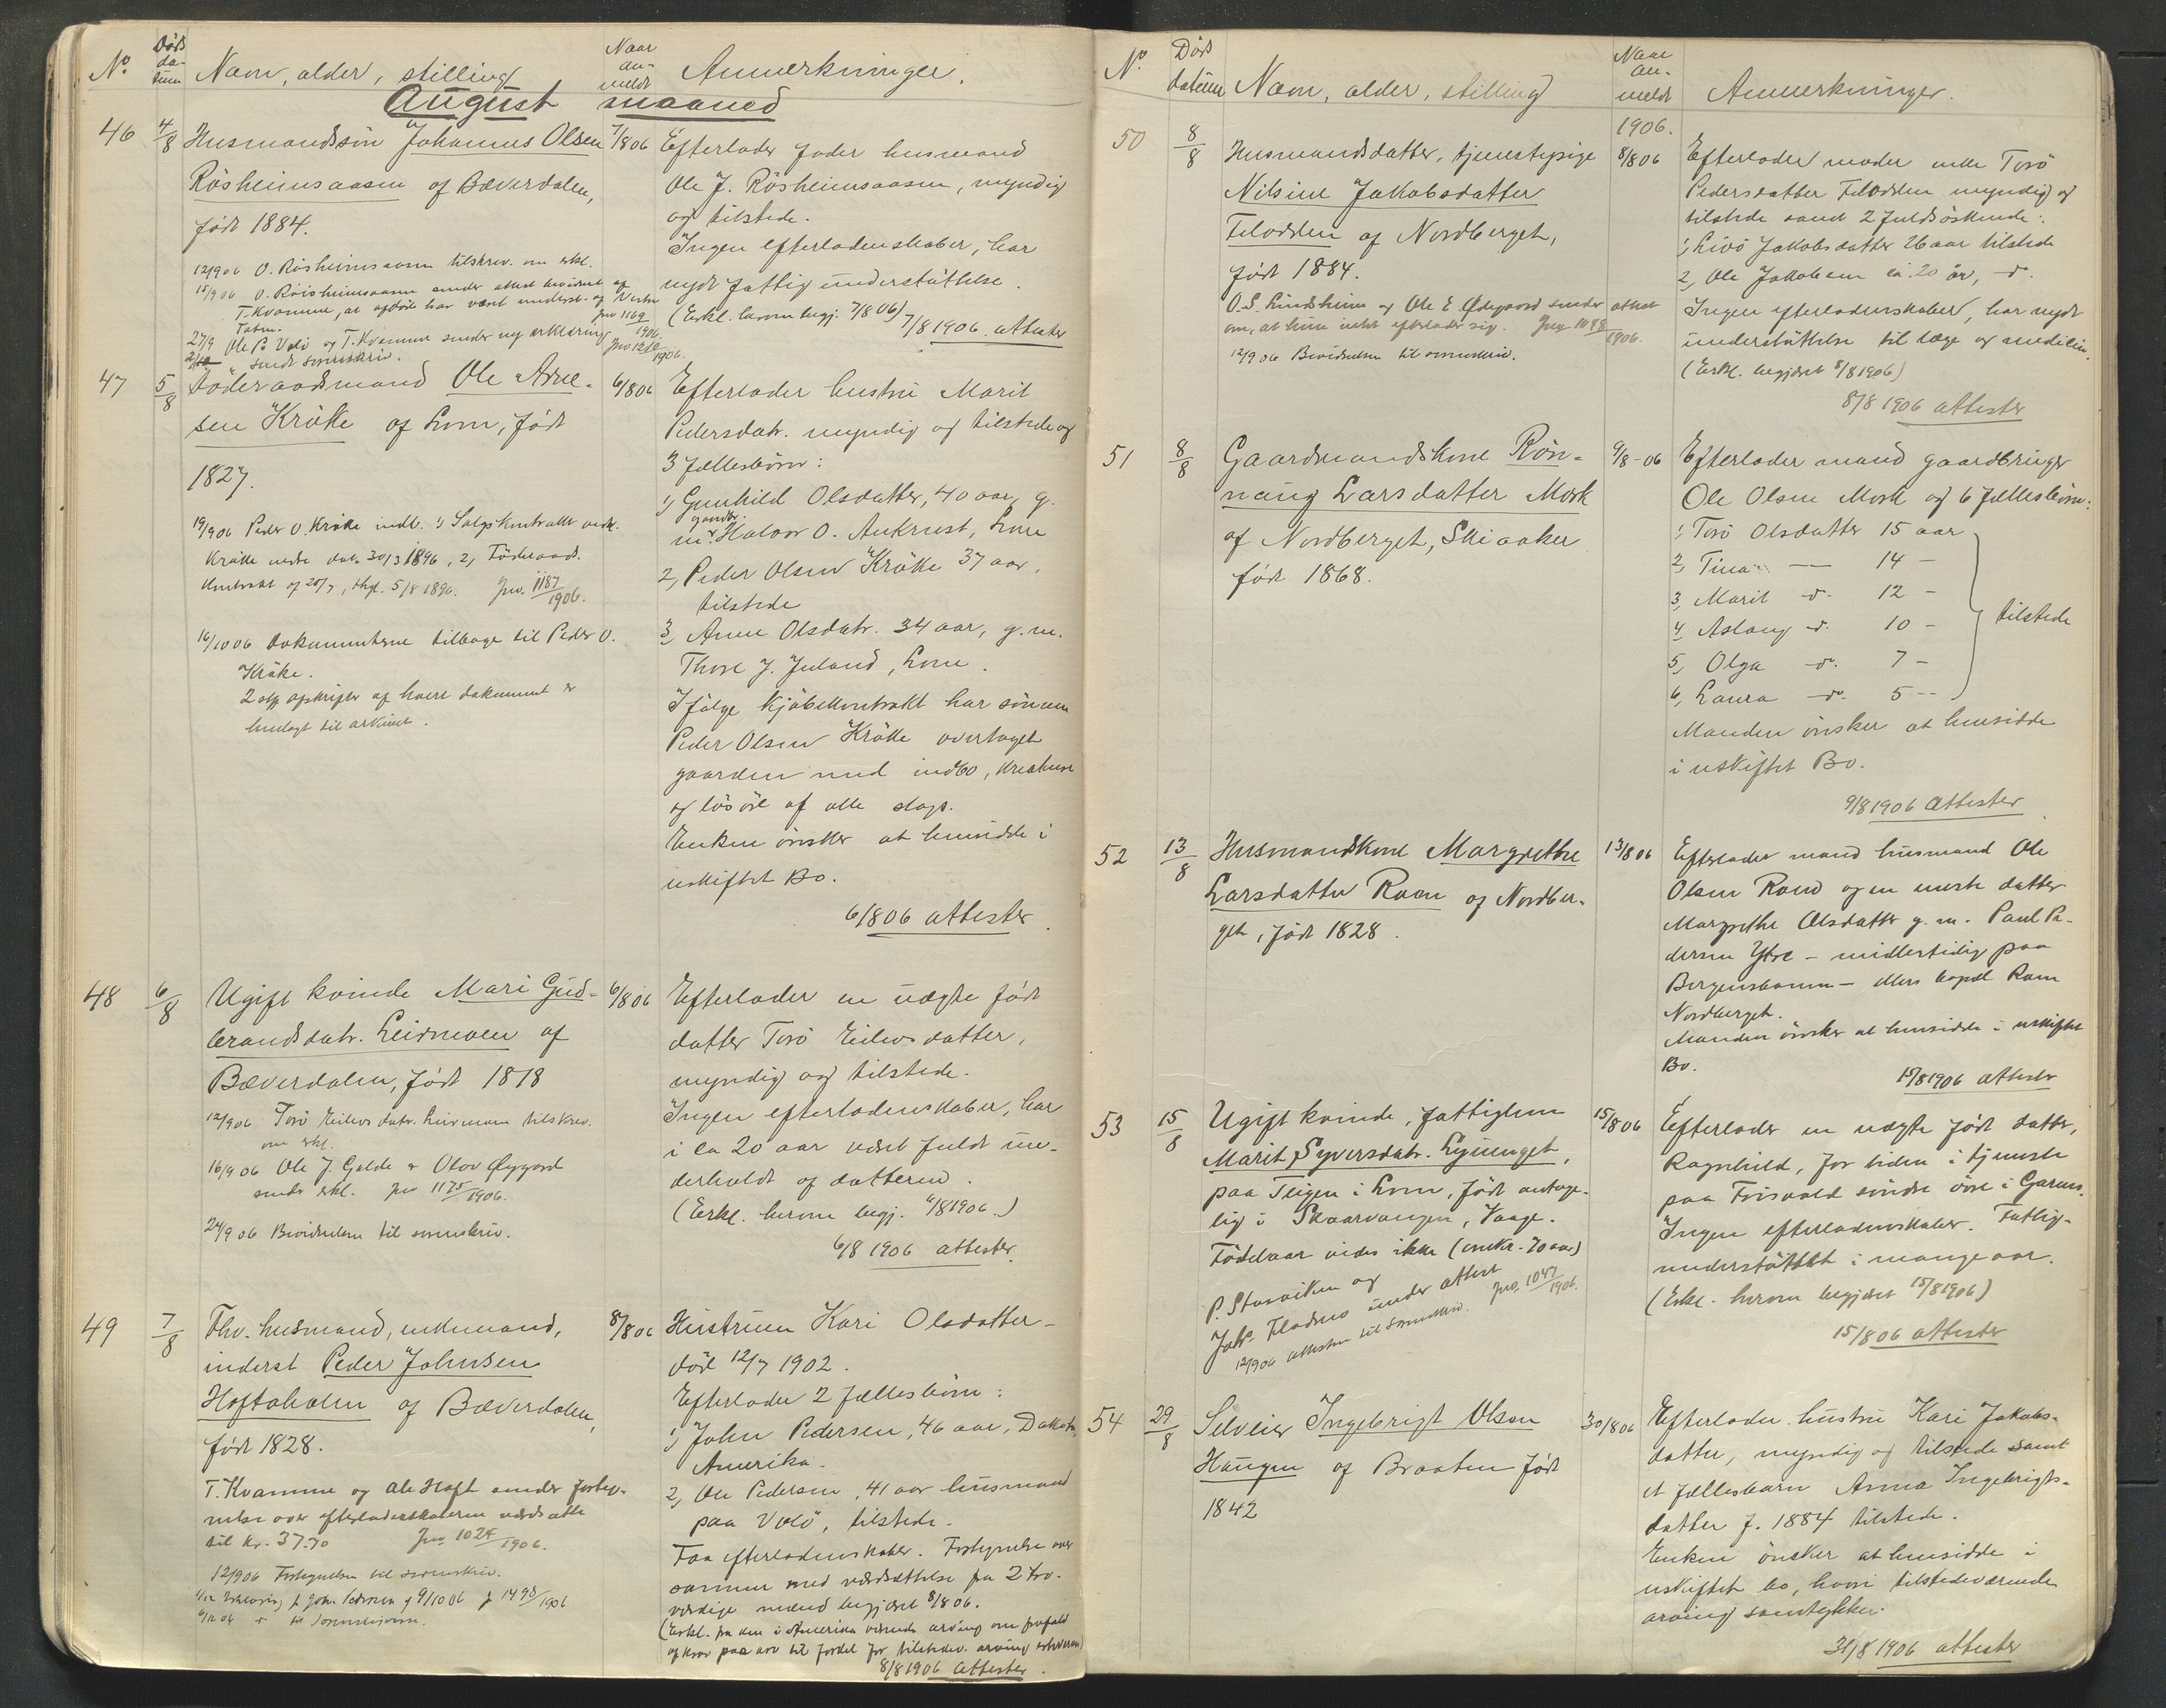 No. Döds da- tum Navn, alder, stilling Naar an- meldt Anmerkninger.
August maaned
46 4/8 Husmandssön Johannes Olsen 7/8 06
Rösheimsaasen af Bæverdalen,
født 1884.
12/9 06 O. Rösheimsaasen tilskrev. om erkl.
15/9 06 O. Rösheimsaasen sender attest bevidnet af
T. Kvamme, at afdöde har vært underst. af
Jno 1169/1906
27/9 Ole P. Volö og T. Kvamme sender ny erklæring
2/10 sendt sorenskriv.
Efterlader fader husmand
Ole J. Rösheimsaasen, myndig
og tilstede.
Ingen efterladenskaber, har
nydt fattigunderstöttelse.
(Erkl. herom begj. 7/8 06)
7/8 1906 attester
47 5/8 Föderaadsmand Ole Arne- 6/8 06
sen Kröke af Lom, født
1827.
19/9 06 Peder O. Kröke indl. 1) Salgskontrakt vedk.
Kröke nedre dat. 30/3 1896, 2, Föderaads-
kontrakt af 20/7, thgl. 5/8 1896. Jno. 1187/1906.
16/10 06 Dokumenterne tilbage til Peder O.
Kröke.
2 afskrifter af hvert dokument er
henlagt til arkivet.
Efterlader hustru Marit
Pedersdatr. myndig og tilstede og
3 fællesbörn:
1, Gunhild Olsdatter, 40 aar, g.
m. gaardbr. Halvor O. Aukrust, Lom
2, Peder Olsen Kröke 37 aar,
tilstede
3, Anne Olsdatr. 34 aar, g. m.
Thore J. Juland, Lom.
Ifölge kjöbekontrakt har sönnen
Peder Olsen Kröke overtaget
gaarden med indbo, kreature
og lösöre af alle slags.
Enken önsker at hensidde i
uskiftet Bo.
6/8 06 attester
48 6/8 Ugift kvinde Mari Gud- 6/8 06
brandsdatr. Leirmoen af
Bæverdalen, født 1818
12/9 06 Torö Eilevsdatr. Leirmoen tilskrev.
om erkl.
16/9 06 Ole J. Galde & Olav Øygard
sender erkl. Jno 1175/1906.
24/9 06 Bevidnelsen til sorenskriv.
Efterlader en uægte født
datter Torö Eilevsdatter,
myndig og tilstede.
Ingen efterladenskaber, har
i ca 20 aar været fuldt un-
derholdt af datteren.
(Erkl. herom begj. 6/8 1906.)
6/8 1906 attester
49 7/8 Fhv. husmand, enkemand, 8/8 06
inderst Peder Johnsen
Hoftoholen af Bæverdalen,
født 1828.
T. Kvamme og Ole Hoft sender forteg-
nelse over efterladenskaberne værdsatte
til Kr. 37.70 Jno 1024/1906.
12/9 06 Fortegnelsen til sorenskriv.
Hustruen Kari Olsdatter
död 12/7 1902.
Efterlader 2 fællesbörn:
1, John Pedersen, 46 aar, Dakota,
Amerika.
2, Ole Pedersen, 41 aar husmand
paa Volö, tilstede.
Faa efterladenskaber. Fortegnelse over
samme med værdsættelse fra 2 tro-
værdige mænd begjæret 8/8 06.
(Erkl. fra den i Amerika værende arving om frafald
af krav paa arv til fordel for tilstedev. arving
8/8 1906 attester.
No. Döds datum Navn, alder, stilling Naar an- meldt Anmerkninger.
1906.
50 8/8 Husmandsdatter, tjenestepige 8/8 06
Nilsine Jakobsdatter
Flodden af Nordberget,
født 1884.
O. S. Lindsheim og Ole E. Ødegaard sender attest
om, at hun intet efterlader sig. Jno 1048/1906.
12/9 06 Bevidnelsen til sorenskriv.
Efterlader moder enke Torö
Pedersdatter Flodden myndig og
tilstede samt 2 fuldsöskende:
1, Livö Jakobsdatter 26 aar tilstede
2, Ole Jakobsen ca. 20 år, do.
Ingen efterladenskaber, har nydt
understöttelse til læge og medicin.
(Erkl. begjæret 8/8 1906)
8/8 1906 attester
51 8/8 Gaardmandskone Rön- 9/8-06
naug Larsdatter Mork
af Nordberget, Skiaaker
født 1868.
Efterlader mand gaardbruger
Ole Olsen Mork og 6 fællesbörn:
1, Torö Olsdatter 15 aar
2, Tina — 14 —
3, Marit do. 12 —
4, Aslaug do. 10 — tilstede
5, Olga do. 7 —
6, Laura do. 5 —
Manden önsker at hensidde
i uskiftet Bo.
9/8 1906 attester
52 13/8 Husmandskone Margrethe 13/8 06
Larsdatter Raam af Nordber-
get, født 1828.
Efterlader mand husmand Ole
Olsen Raam og en eneste datter
Margrethe Olsdatter g. m. Paul Pe-
dersen Ytre — midlertidig paa
Bergensbanen — ellers bopæl Raam
Nordberget.
Manden önsker at hensidde i uskiftet
Bo.
15/8 1906 attester
53 15/8 Ugift kvinde, fattiglem 15/8 06
Marit Syversdatr. Lyunget,
paa Teigen i Lom, født antage-
lig i Skaarvangen, Vaage.
Födelaar vides ikke (omkr. 70 aar)
P. Storviken og
Johs. Flodmo sender attest Jno. 1047/1906.
12/9 06 attesten til sorenskriv.
Efterlader en uægte født datter,
Ragnhild, for tiden i tjeneste
paa Frisvold söndre övre i Garmo.
Ingen efterladenskaber. Fattig-
understöttet i mange aar.
(Erkl. herom begjæret 15/8 1906)
15/8 06 attester
54 29/8 Selveier Ingebrigt Olsen 30/8 06
Haugen af Braaten født
1842
Efterlader hustru Kari Jakobs-
datter, myndig og tilstede samt
et fællesbarn Anna Ingebrigts-
datter f. 1884 tilstede.
Enken önsker at hensidde i
uskiftet bo, hvori tilstedeværende
arving samtykker.
31/8 1906 attester